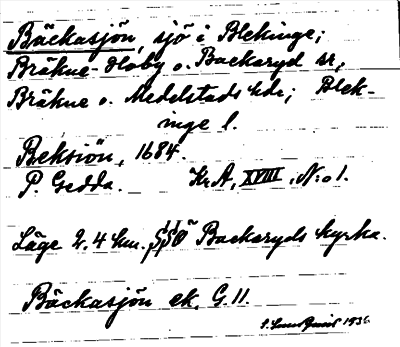 Bäckasjön, sjö i Blekinge;
Bräkne-Hoby o. Backaryd sr,
Bräkne o. Medelstads hde; Blek-
inge l.
Beksiön, 1684.
P. Gedda. Kr.A, XVIII, N:o 1.
Läge 2.4 km. SSO Backaryds kyrka.
Bäckasjön ek. G. 11.
1936